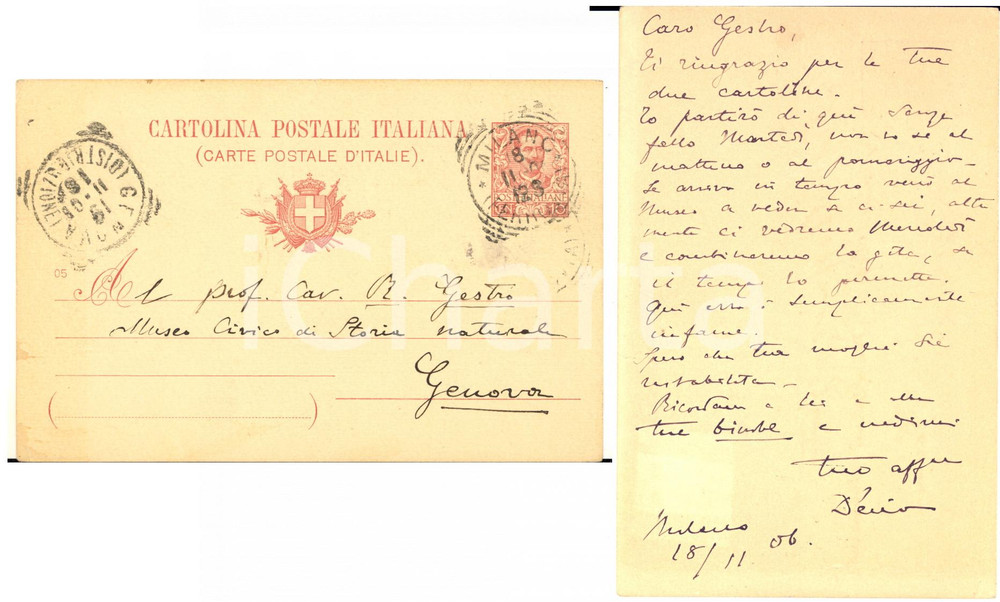 CARTOLINA POSTALE ITALIANA
(CARTE POSTALE D'ITALIE).
MILANO
18
11
GENOVA (DISTRIBUZIONE)
19
11
05
Al prof. Cav. R. Gestro
Museo Civico di Storia naturale
Genova
iCharta
Caro Gestro,
Ti ringrazio per le tue
due cartoline.
Io partirò di qui senza
fallo Martedì, non so se al
mattino o al pomeriggio.
Se arrivo in tempo verrò al
Museo a veder se ci sei, altri
mente ci vedremo Mercoledì
e combineremo la gita, se
il tempo lo permette.
Qui esso è semplicemente
infame.
Spero che tua moglie sia
ristabilita.
Ricordami a lei e alle
tue bimbe e credimi
tuo affmo
Milano
18/11 06.